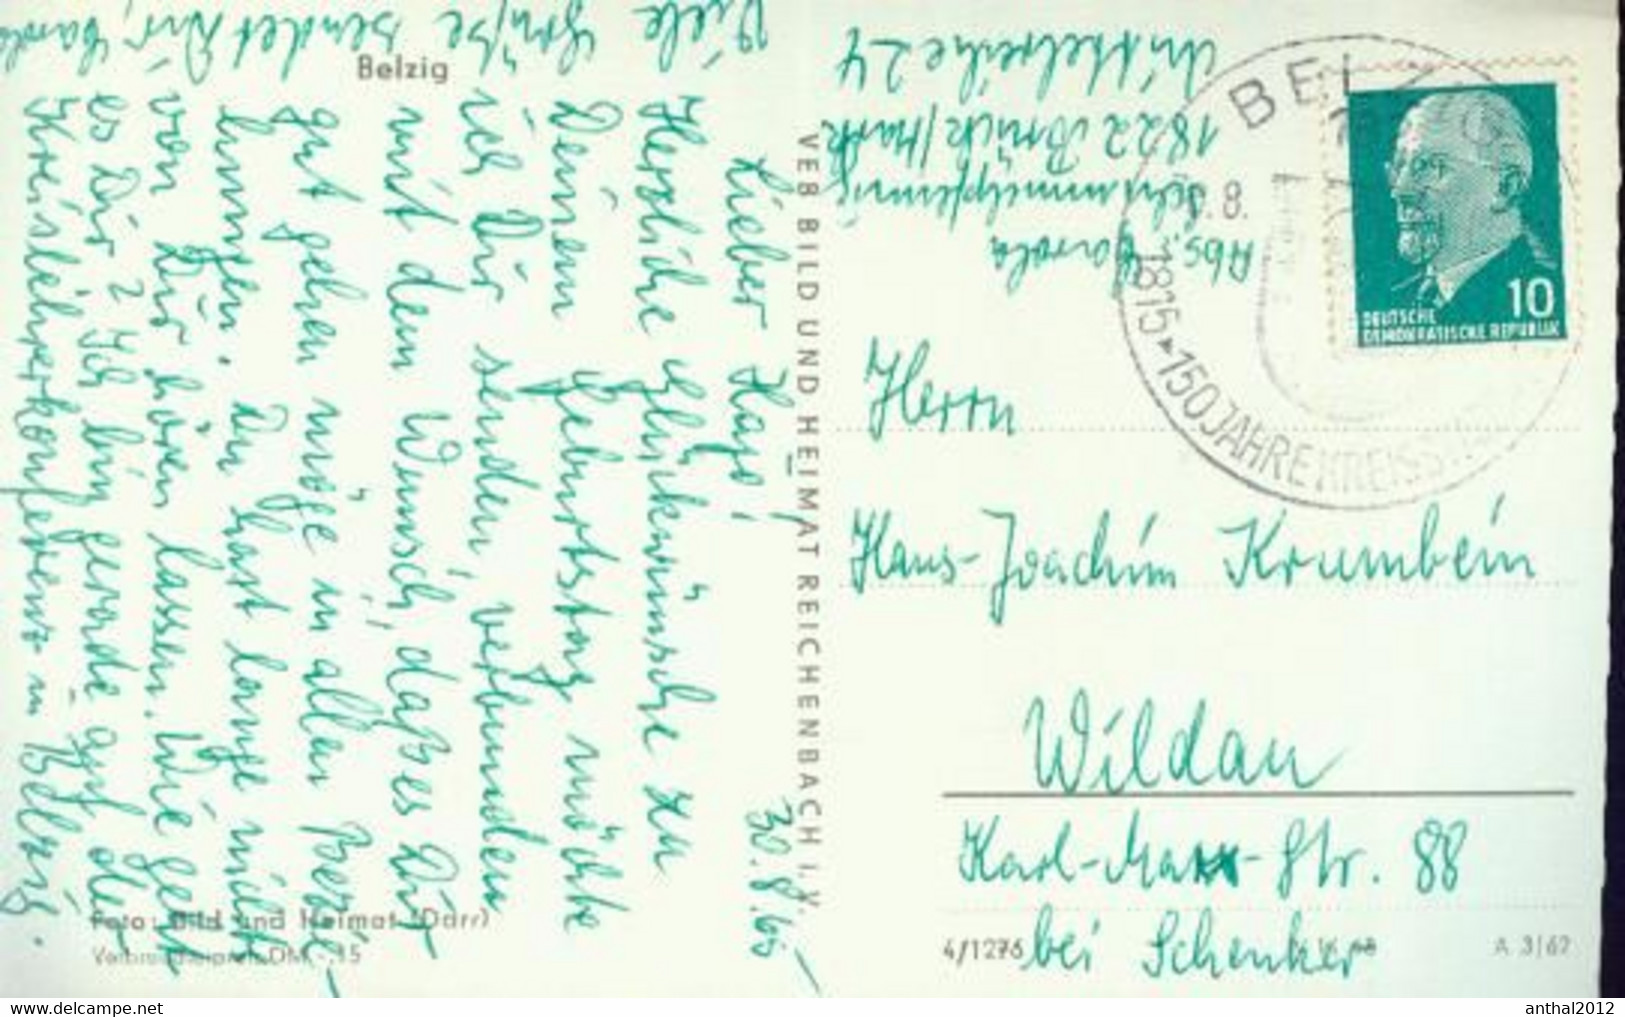 Belzig
30.8.65
Lieber Hajo!
Herzliche Glückwünsche zu
Deinem Geburtstag möchte
ich Dir senden, verbunden
mit dem Wunsch, daß es Dir
gut gehen möge in allen Bezie-
hungen. Du hast lange nichts
von Dir hören lassen. Wie geht
es Dir? Ich bin gerade auf der
Kreislehrerkonferenz in Belzig.
Viele Grüße sendet Dir, Carola
Foto: Bild und Heimat (Darr)
Verbraucherpreis DM -.15
VEB BILD UND HEIMAT REICHENBACH I. V.
Abs. Carola
Schimmelpfennig
1822 Brück/Mark
Mittelreihe 24
BELZIG
.8.
1815 150 JAHRE KREISS
10
DEUTSCHE
DEMOKRATISCHE REPUBLIK
Herrn
Hans-Joachim Krumbein
Wildau
Karl-Marx-Str. 88
bei Schenker
4/1276
A 3/62
anthal2012